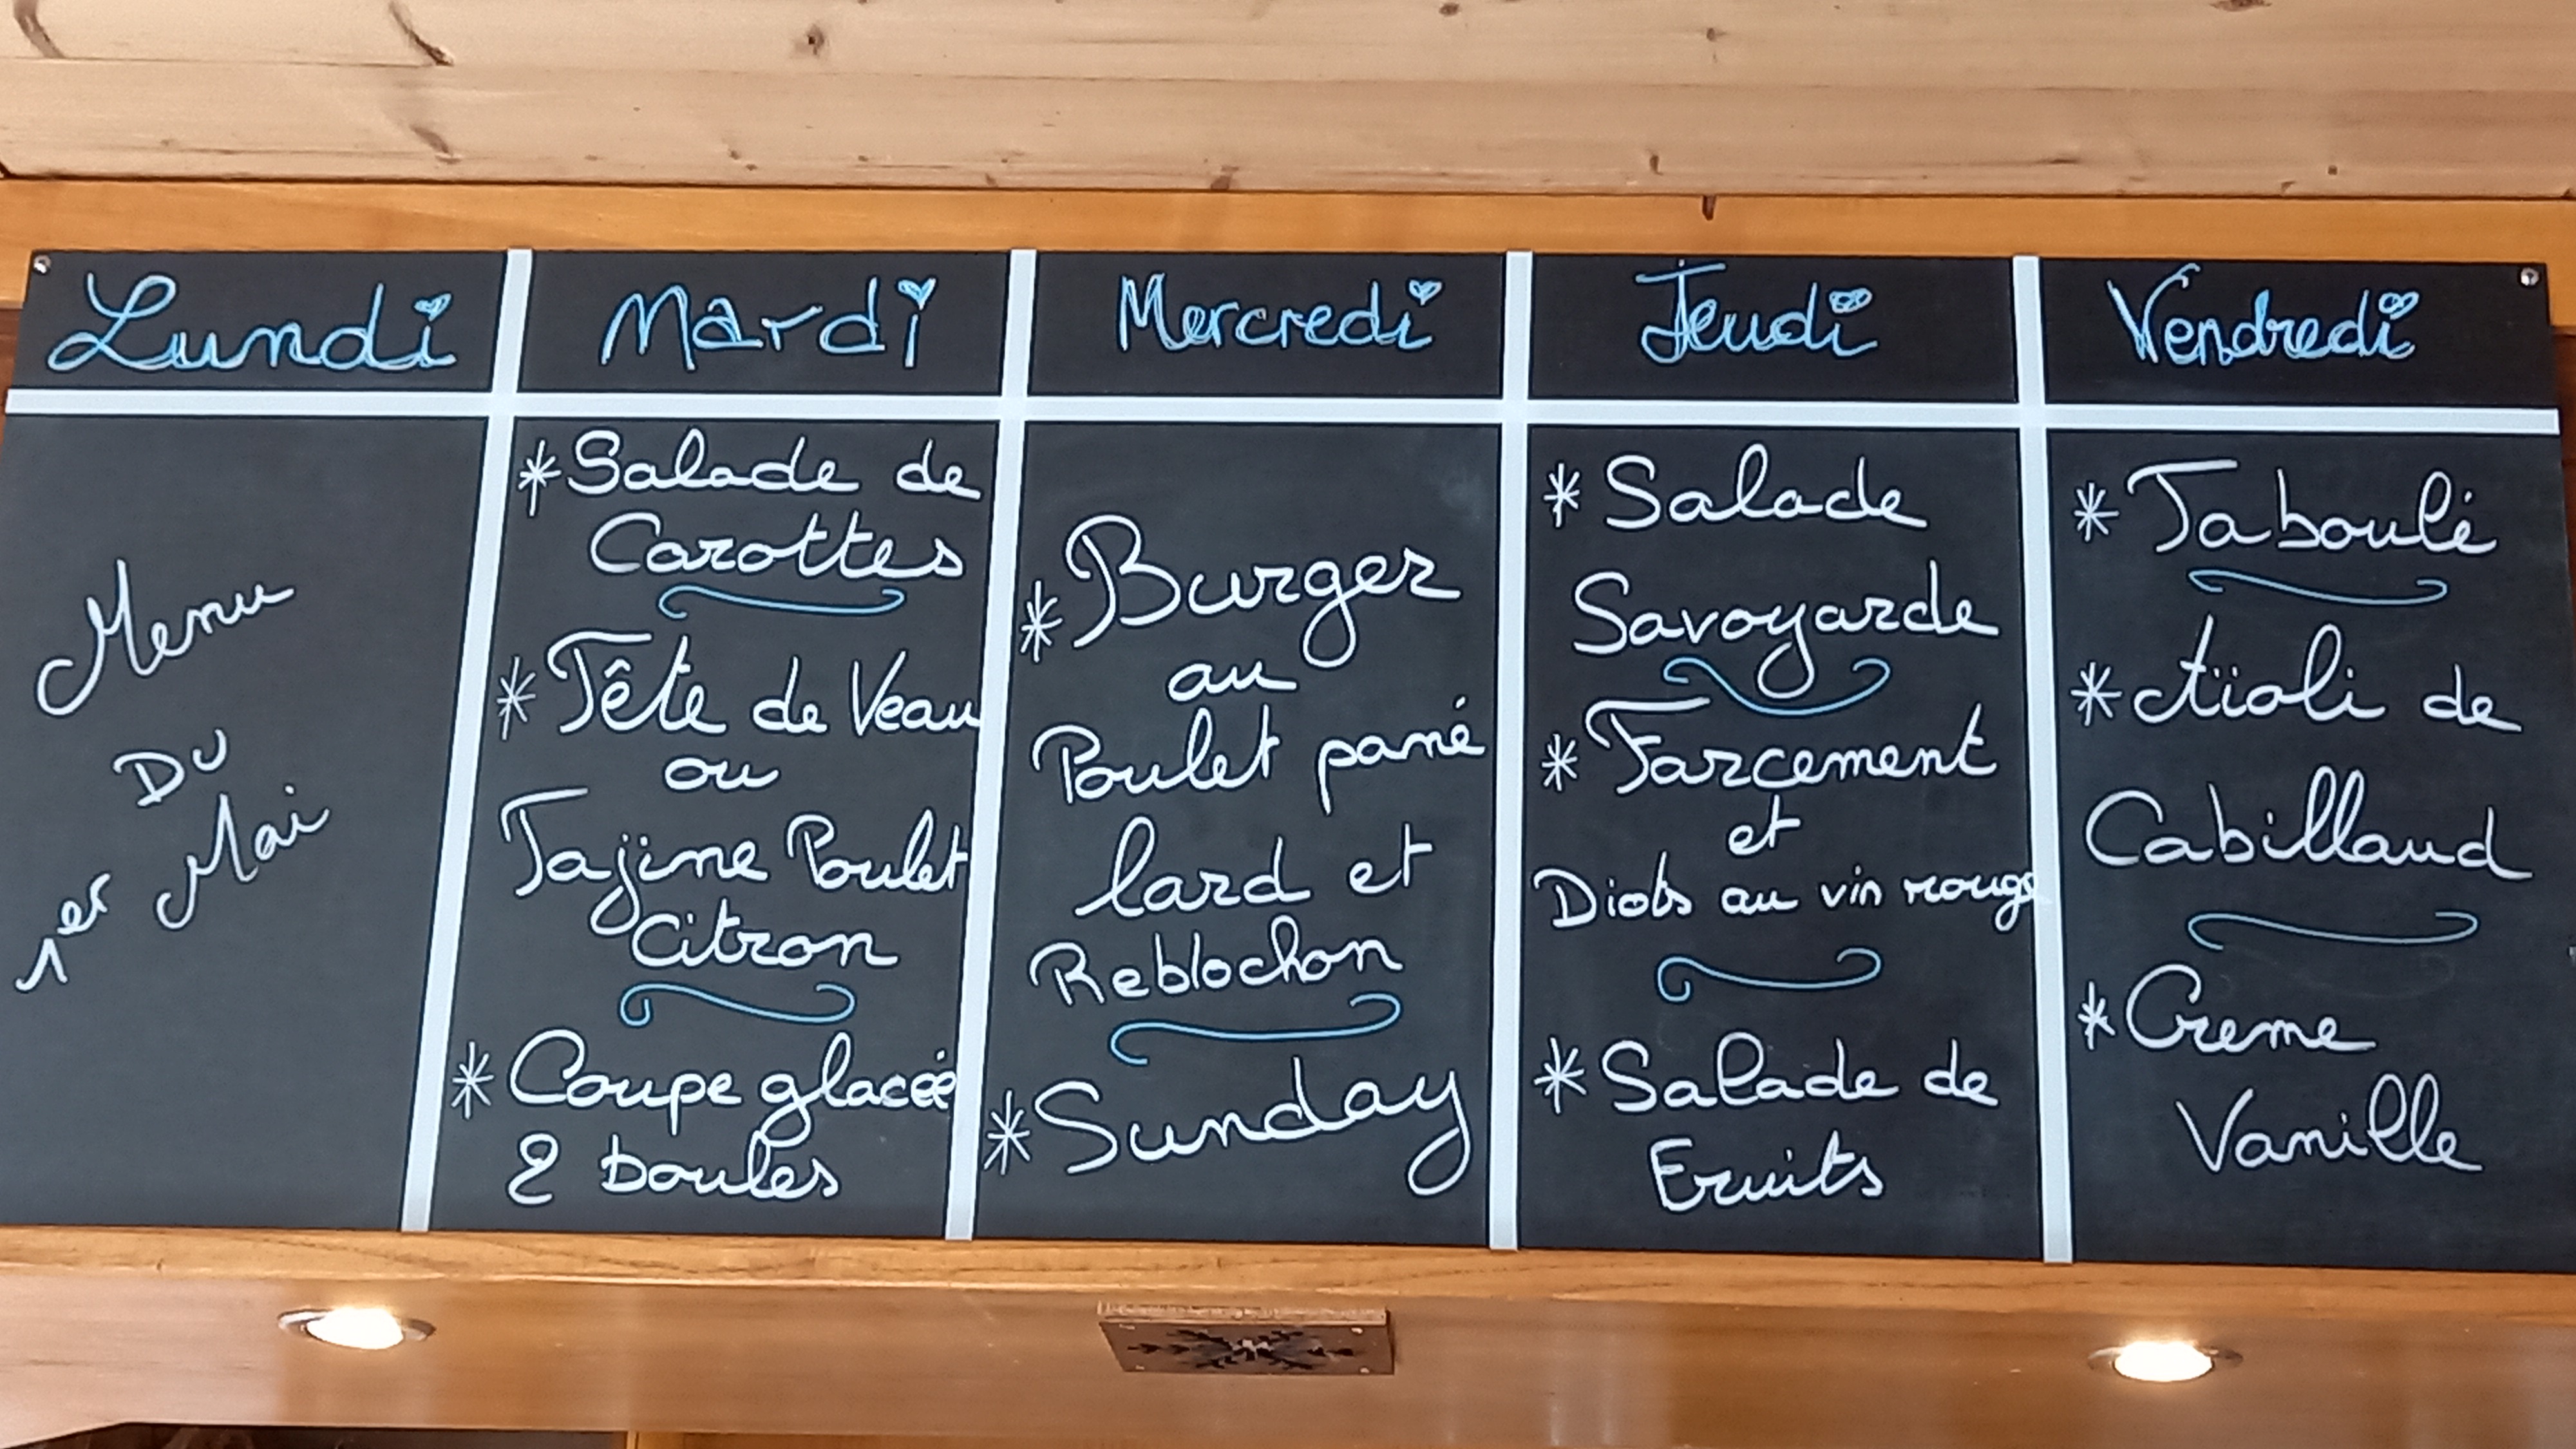 Lundi
Menu
Du
1er Mai
Mardi
* Salade de
Carottes
* Tête de Veau
ou
Tajine Poulet
Citron
* Coupe glacée
2 boules
Mercredi
* Burger
au
Poulet pané
lard et
Reblochon
* Sunday
Jeudi
* Salade
Savoyarde
* Farcement
et
Diots au vin rouge
* Salade de
Fruits
Vendredi
* Taboulé
* Aïoli de
Cabillaud
* Creme
Vanille